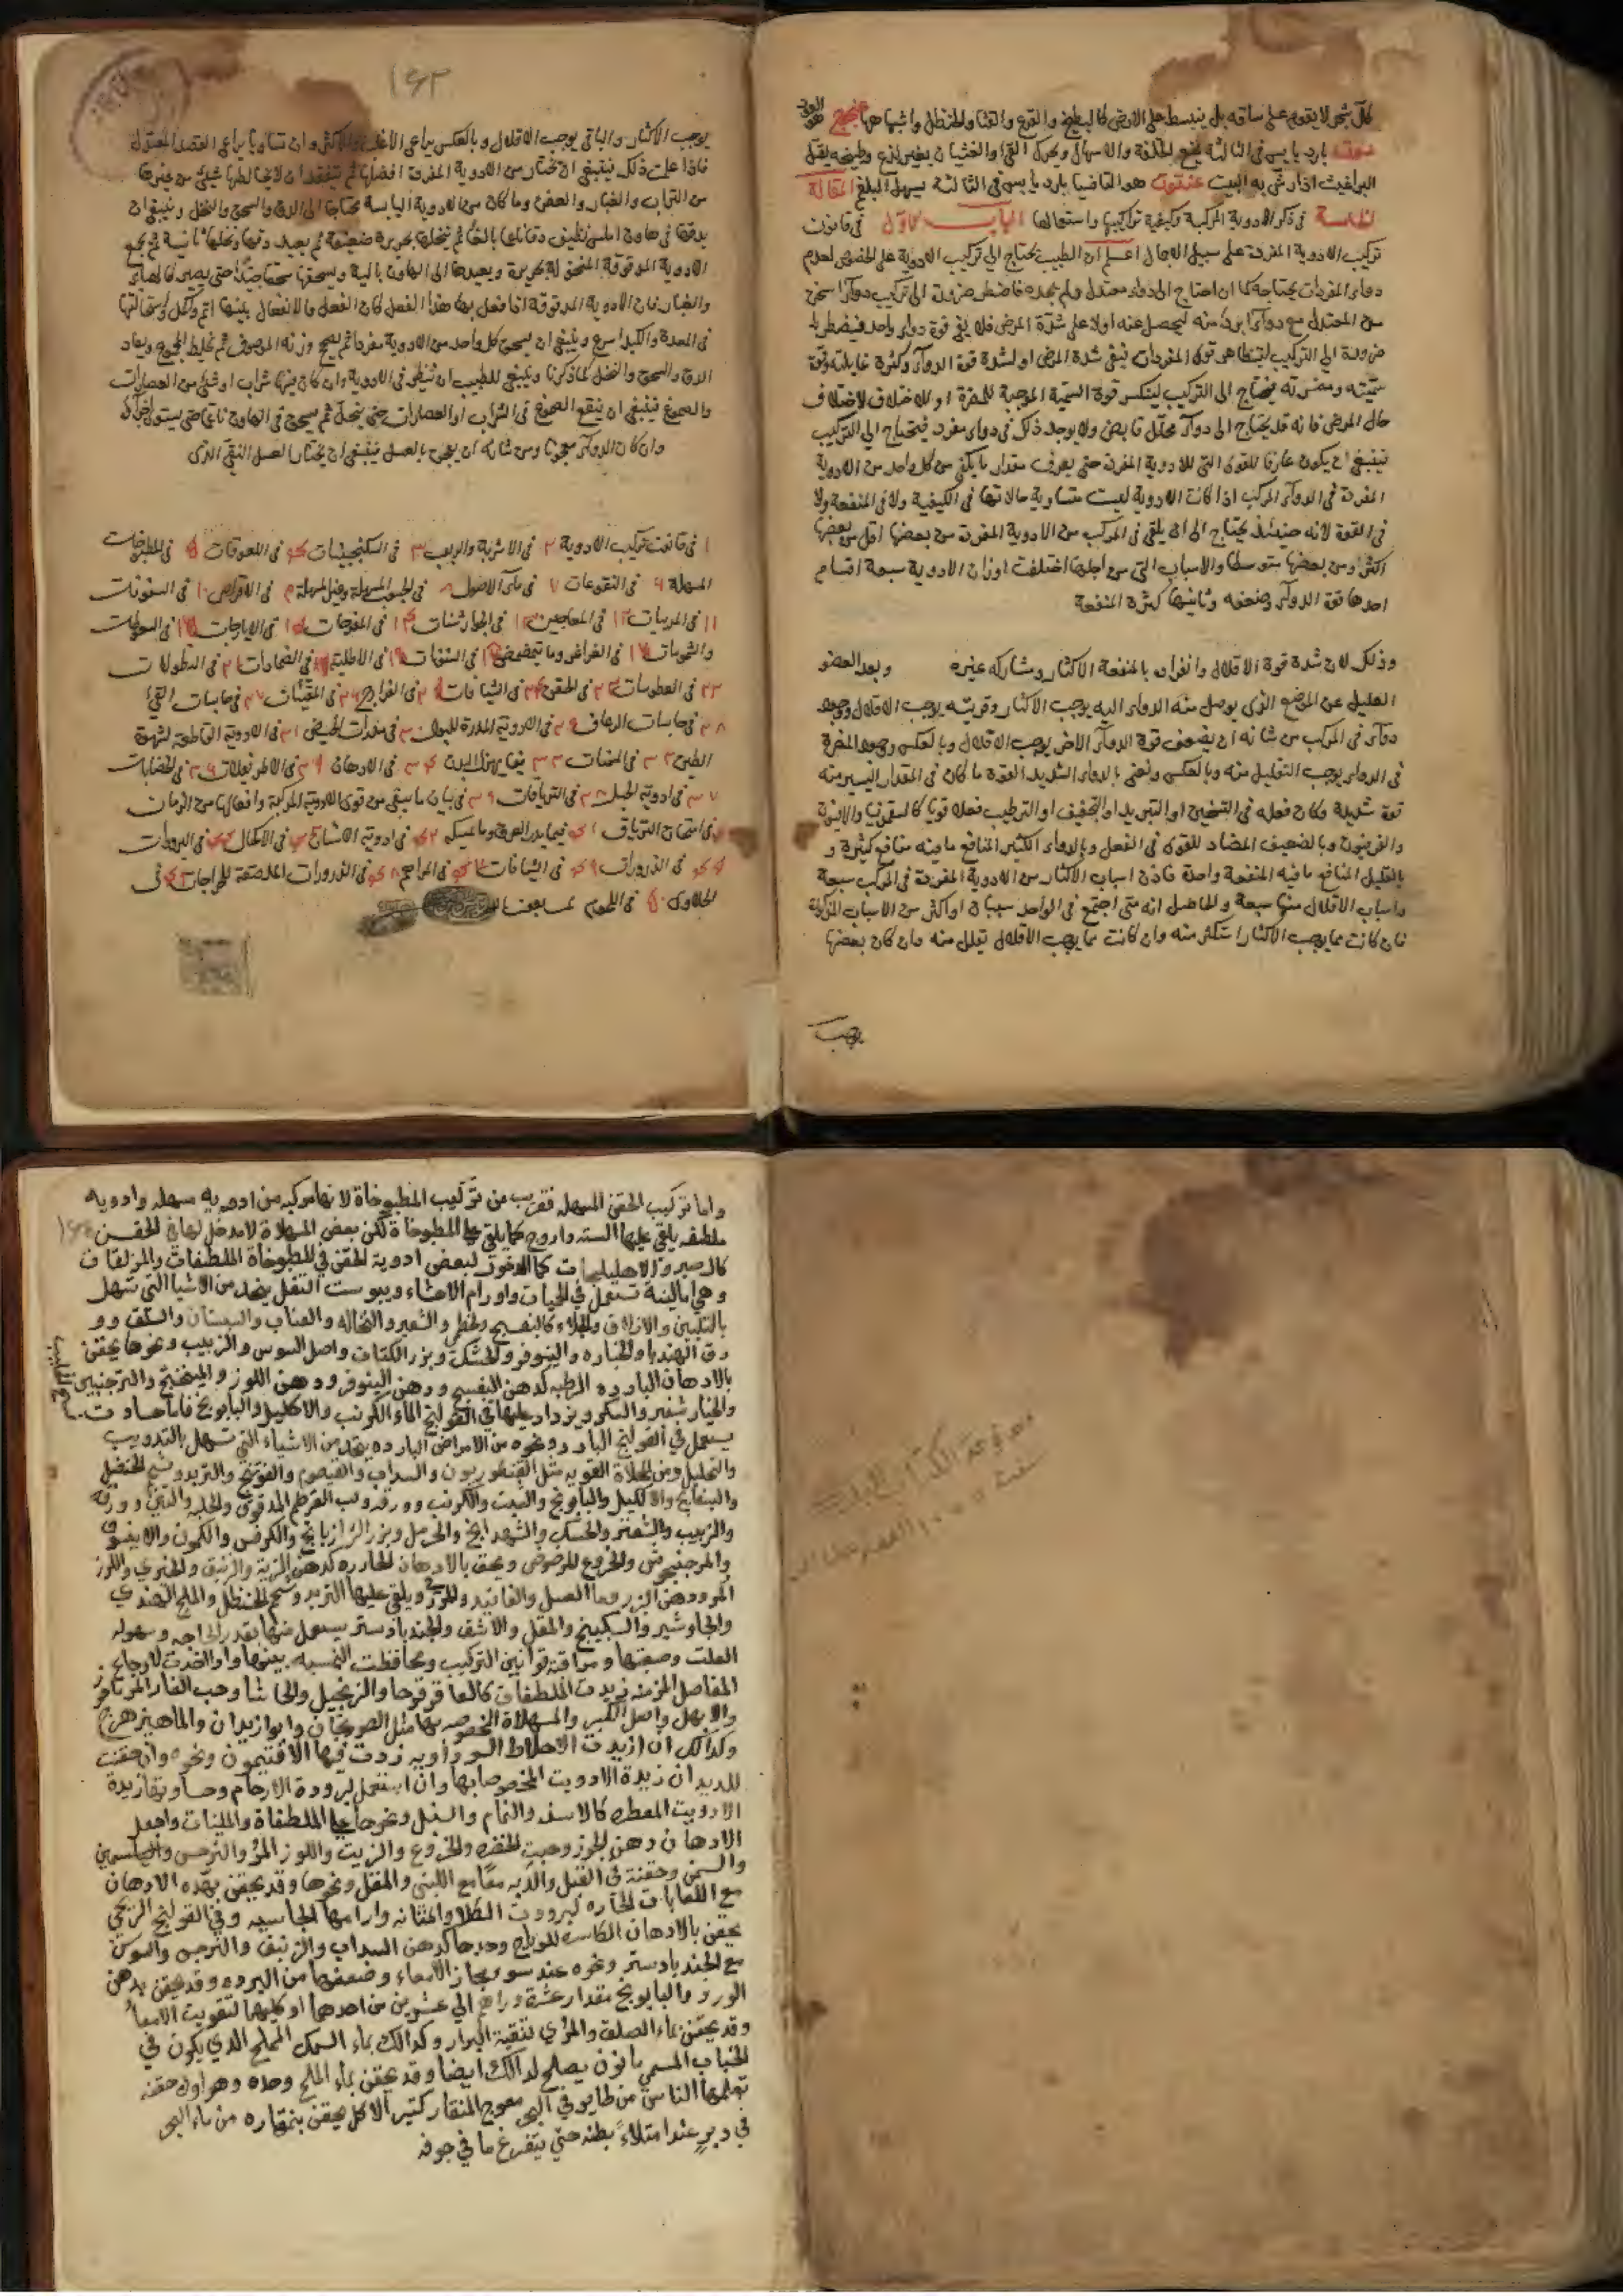 كل شجر لا يقوم على ساقه بل ينبسط على الارض كالبطيخ والقرع والقثا والحنظل واشباهها
بارد يابس فى الثالثة ينفع والاسهال ويحرك القئ والغثيان بغير لذع وطبيخه يقتل
البراغيث اذا رش به البيت هو بارد يابس فى الثالثة يسهل البلغم المقالة
الثالثة فى ذكر الادوية المركبة وكيفية تركيبها واستعمالها الباب الاول فى قانون
تركيب الادوية المفردة على سبيل الاجمال اعلم ان الطبيب يحتاج الى تركيب الادوية على الخصوص لعدم
دواء المفردات يحتاجه كما ان احتاج الى دواء معتدل ولم يجده فاضطر ضرورة الى تركيب دواء اسخن
من المعتدل مع دواء ابرد منه ليحصل عنه اولا على شدة المرض فلا يفى قوة دواء واحد فيضطر با
ضرورة الى التركيب قوى المفردات شدة المرض او لشدة قوة الدواء وكثرة غايلته وقوة
سميته ومضرته يحتاج الى التركيب لينكسر قوة السمية الموجبة للمضرة او للاختلاف
حال المرض فانه قد يحتاج الى دواء محلل قابض ولا يوجد ذلك فى دواء مفرد فيحتاج الى التركيب
فينبغى ان يكون عارفا للقوى التى للادوية المفردة حتى يعرف مقدار ما يلقى من كل واحد من الادوية
المفردة فى الدواء المركب اذا كانت الادوية ليست متساوية حالاتها فى الكيفية ولا فى المنفعة ولا
فى القوة لانه حينئذ يحتاج الى ان يلقى فى المركب من الادوية المفردة من بعضها اقل من بعضها
اكثر ومن بعضها متوسطا والاسباب التى من اجلها اختلفت اوزان الادوية سبعة اقسام
احدها قوة الدواء وضعفه وثانيها كثرة المنفعة
وذلك لان شدة قوة الاقلال وانفراده بالمنفعة الاكثار ومشاركه غيره وبعد العضو
العليل عن الموضع الذى يوصل منه الدواء اليه يوجب الاكثار وقربته يوجب الاقلال ووجود
دواء فى المركب من شانه ان يضعف قوة الدواء الاخر يوجب الاقلال وبالعكس ووجود المضرة
فى الدواء يوجب التقليل منه وبالعكس ونعنى بالدواء الشديد القوة ما كان فى المقدار اليسير منه
قوة شديدة وكان فعله فى التسخين او التبريد او التجفيف او الترطيب فعلا قويا كالسقمونيا والافيون
والفربيون وبالضعيف المضاد للقوى فى الفعل وبالدواء الكثير المنافع ما فيه منافع كثيرة و
بالقليل المنافع ما فيه المنفعة واحدة فاذن اسباب الاكثار من الادوية المفردة فى المركب سبعة
واسباب الاقلال منها سبعة والحاصل انه متى اجتمع فى الواحد سببان او اكثر من الاسباب المذكورة
فان كانت مما يوجب الاكثار استكثر منه وان كانت مما يوجب الاقلال تقلل منه وان كان بعضها
يوجب
١٤٣
يوجب الاكثار والباقى يوجب الاقلال وبالعكس يراعى الاغلب والاكثر وان تساويا يراعى القصد المعتدل
فاذا علمت ذلك فينبغى ان تختار من الادوية المفردة افضلها ثم تتفقد ان لا يخالطها شيئ من غيرها
من التراب والغبار والعفن وما كان من الادوية اليابسة محتاجا الى الدق والسحق والنخل وينبغى ان
يدقها فى هاون املس نظيف دقا بالغا ثم ينخلها بحريرة ضعيفة ثم يعيد دقها ونخلها ثانية ثم يجمع
الادوية المدقوقة المنخولة بحريرة ويعيدها الى الهاون بالية ويسحقها سحقا جيدا حتى يصير كالهباء
والغبار فان الادوية المدقوقة اذا فعل بها هذا الفعل كان الفعل والانفعال بينها اتم واكمل واستحالتها
فى المعدة والكبد اسرع وينبغى ان يسحق كل واحد من الادوية مفردا ثم يصح وزنه الموصوف ثم يخلط الجميع ويعاد
الدق والسحق والنخل كما ذكرنا وينبغى للطبيب ان ينظر فى الادوية وان كان فيها شراب او شيئ من العصارات
والصموغ فينبغى ان ينقع الصموغ فى الشراب او العصارات حتى ينحل ثم يسحق فى الهاون ناعما حتى يستوى اجزاؤه
وان كان الدواء معجونا ومن شانه ان يعجن بالعسل فينبغى ان يختار العسل النقى الذى
١ فى قانون تركيب الادوية ٢ فى الاشربة والربوب ٣ فى السكنجبينات ٤ فى اللعوقات ٥ فى المطبوخات
المسهلة ٦ فى النقوعات ٧ فى ماء الاصول ٨ فى الحبوب المسهلة وغير المسهلة ٩ فى الاقراص ١٠ فى السفوفات
١١ فى المربيات ١٢ فى المعاجين ١٣ فى الجوارشنات ١٤ فى المفرحات ١٥ فى الايارجات ١٦ فى السعوطات
والشمومات ١٧ فى الغراغر وما يتمضمض ١٨ فى السنونات ١٩ فى الاطلية ٢٠ فى الضمادات ٢١ فى النطولات
٢٢ فى العطوسات ٢٣ فى الحقن ٢٤ فى الشيافات ٢٥ فى الفرازج ٢٦ فى المقيئات ٢٧ فى حابسات القئ
٢٨ فى حابسات الرعاف ٢٩ فى الادوية المدرة للبول ٣٠ فى مدرات الحيض ٣١ فى الادوية القاطعة لشهوة
الطين ٣٢ فى المسمنات ٣٣ فيما يهزل البدن ٣٤ فى الادهان ٣٥ فى الاطريفلات ٣٦ فى الخضابات
٣٧ فى ادوية الحبل ٣٨ فى الترياقات ٣٩ فى بيان ما يبقى من قوى الادوية المركبة وافعالها من الزمان
٤٠ فى امتحان الترياق ٤١ فيما يدر العرق وما يمسكه ٤٢ فى ادوية ٤٣ فى الاكحال ٤٤ فى البرودات
٤٥ فى الذرورات ٤٦ فى الشيافات ٤٧ فى المراهم ٤٨ فى الذرورات الملصقة للجراحات ٤٩ فى
الحلاوى ٥٠ فى اللحوم
واما تركيب الحقن المسهله فقريب من تركيب المطبوخاة لانها مركبه من ادويه مسهله وادويه
ملطفه يلقى عليها كما يلقى على المطبوخاة لكن بعض المسهلاة لا مدخل لها فى الحقن
كالصبر والاهليلجات كما لا دخول لبعض ادوية الحقن فى المطبوخاة الملطفات والمزلقات
وهى اما لينة تستعمل فى الحميات واورام الاحشاء ويبوست الثفل يتخذ من الاشيا التى تسهل
بالتليين والازلاق والجلاء كالبنفسج والخطمى والشعير والنخاله والعناب والسبستان والسلق وو
رق الهندبا والخبازه والنيلوفر والحسك وبزر الكتان واصل السوس والزبيب ونحوها يحقن
بالادهان البارده الرطبه كدهن البنفسج ودهن النيلوفر ودهن اللوز والميبختج والترنجبين
والخيار شنبر والسكر ويزداد عليها فى القولنج الماء الكرنب والاكليل والبابونج فاما حادت
يستعمل فى القولنج البارد ونحوه من الامراض البارده يتخذ من الاشياء التى تسهل بالتذويب
والتحليل ومن الجلاة القويه مثل القنطوريون والسداب والقيصوم والفوتنج والتربد وشحم الحنظل
والبسفايج والاكليل والبابونج والشبت والكرنب وورقه ولب القرطم المدقوق والحلبه والتين وورقه
والزبيب والشعير والحسك والشهدانج والحرمل وبزر الرازيانج والكرفس والكمون والانيسون
والمرزنجوش والخروع المرضوض ويحقن بالادهان الحاره كدهن الزيت والزنبق والخيرى واللوز
المر ودهن البزر ومعا العسل والفانيذ والمرى ويلقى عليها التربد وشحم الحنظل والملح الهندى
والجاوشير والسكبينج والمقل والاشق والجندبادستر يستعمل منها بقدر الحاجه وسهوله
العلت وصعبتها ومراقبة قوانين التركيب ومحافظت النسبه بينها واذا اتخذت لاوجاع
المفاصل المزمنه زيدت الملطفات كالعاقرقرحا والزنجبيل والحاشا وحب الغار
والابهل واصل الكبر والمسهلاة المخصوصه بها مثل السورنجان وابوازيدان والماهيزهرج
وكذلك ان ازيدت الاخلاط السوداويه زدت فيها الافتيمون ونحوه وان حقنت
للديدان زيدة الادويت المخصوصا بها وان استعمل لبرودة الارحام زيدة
الادويت المعطره والنمام والسنبل ونحوها على الملطفاة والملينات واجعل
الادهان دهن الجوز وحبت الخضره والخروع والزيت واللوز المر والنرجس والياسمين
والسمن وحقنة فى القبل والدبه معا مع اللبنى والمقل ونحوها وقد يحقن بهذه الادهان
مع اللعابات الحاره لبرودت الكلا والمثانه وارامها الجاسيه وفى القولنج الريحى
يحقن بالادهان الكاسره للرياح وحدها كدهن السداب والزنبق والنرجس والسوسن
مع الجندبادستر ونحوه عند سوء مجاز الامعاء وضعفها من البروده وقد يحقن بدهن
الورد والبابونج مقدار عشرة دراهم الى عشرين من احدهما او كليهما لتقويت الامعاء
وقد يحقن بماء السلق والمرى لتنقية البراز وكذالك بماء السمك المملح الذى يكون فى
الخباب المسمى يصلح لذالك ايضا وقد يحقن بماء الملح وحده وهو اول حقنه
تعلمها الناس من طاير فى البحر معوج المنقار كثير الاكل يحقن بمنقاره من ماء البحر
فى دبره عند امتلاء بطنه حتى يتفرغ ما فى جوفه